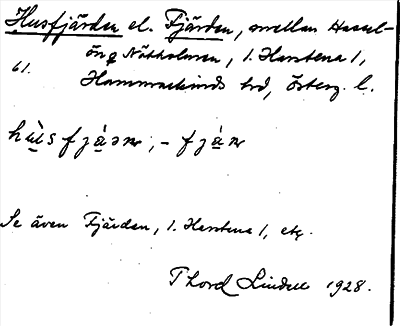 Husfjärden el. Fjärden, mellan Hassel-
ön o Nötholmen, 1. Harstena 1,
61. Hammarkinds hd, Österg. l.
Se även Fjärden, 1. Harstena 1, etc.
Thord Lindell 1928.